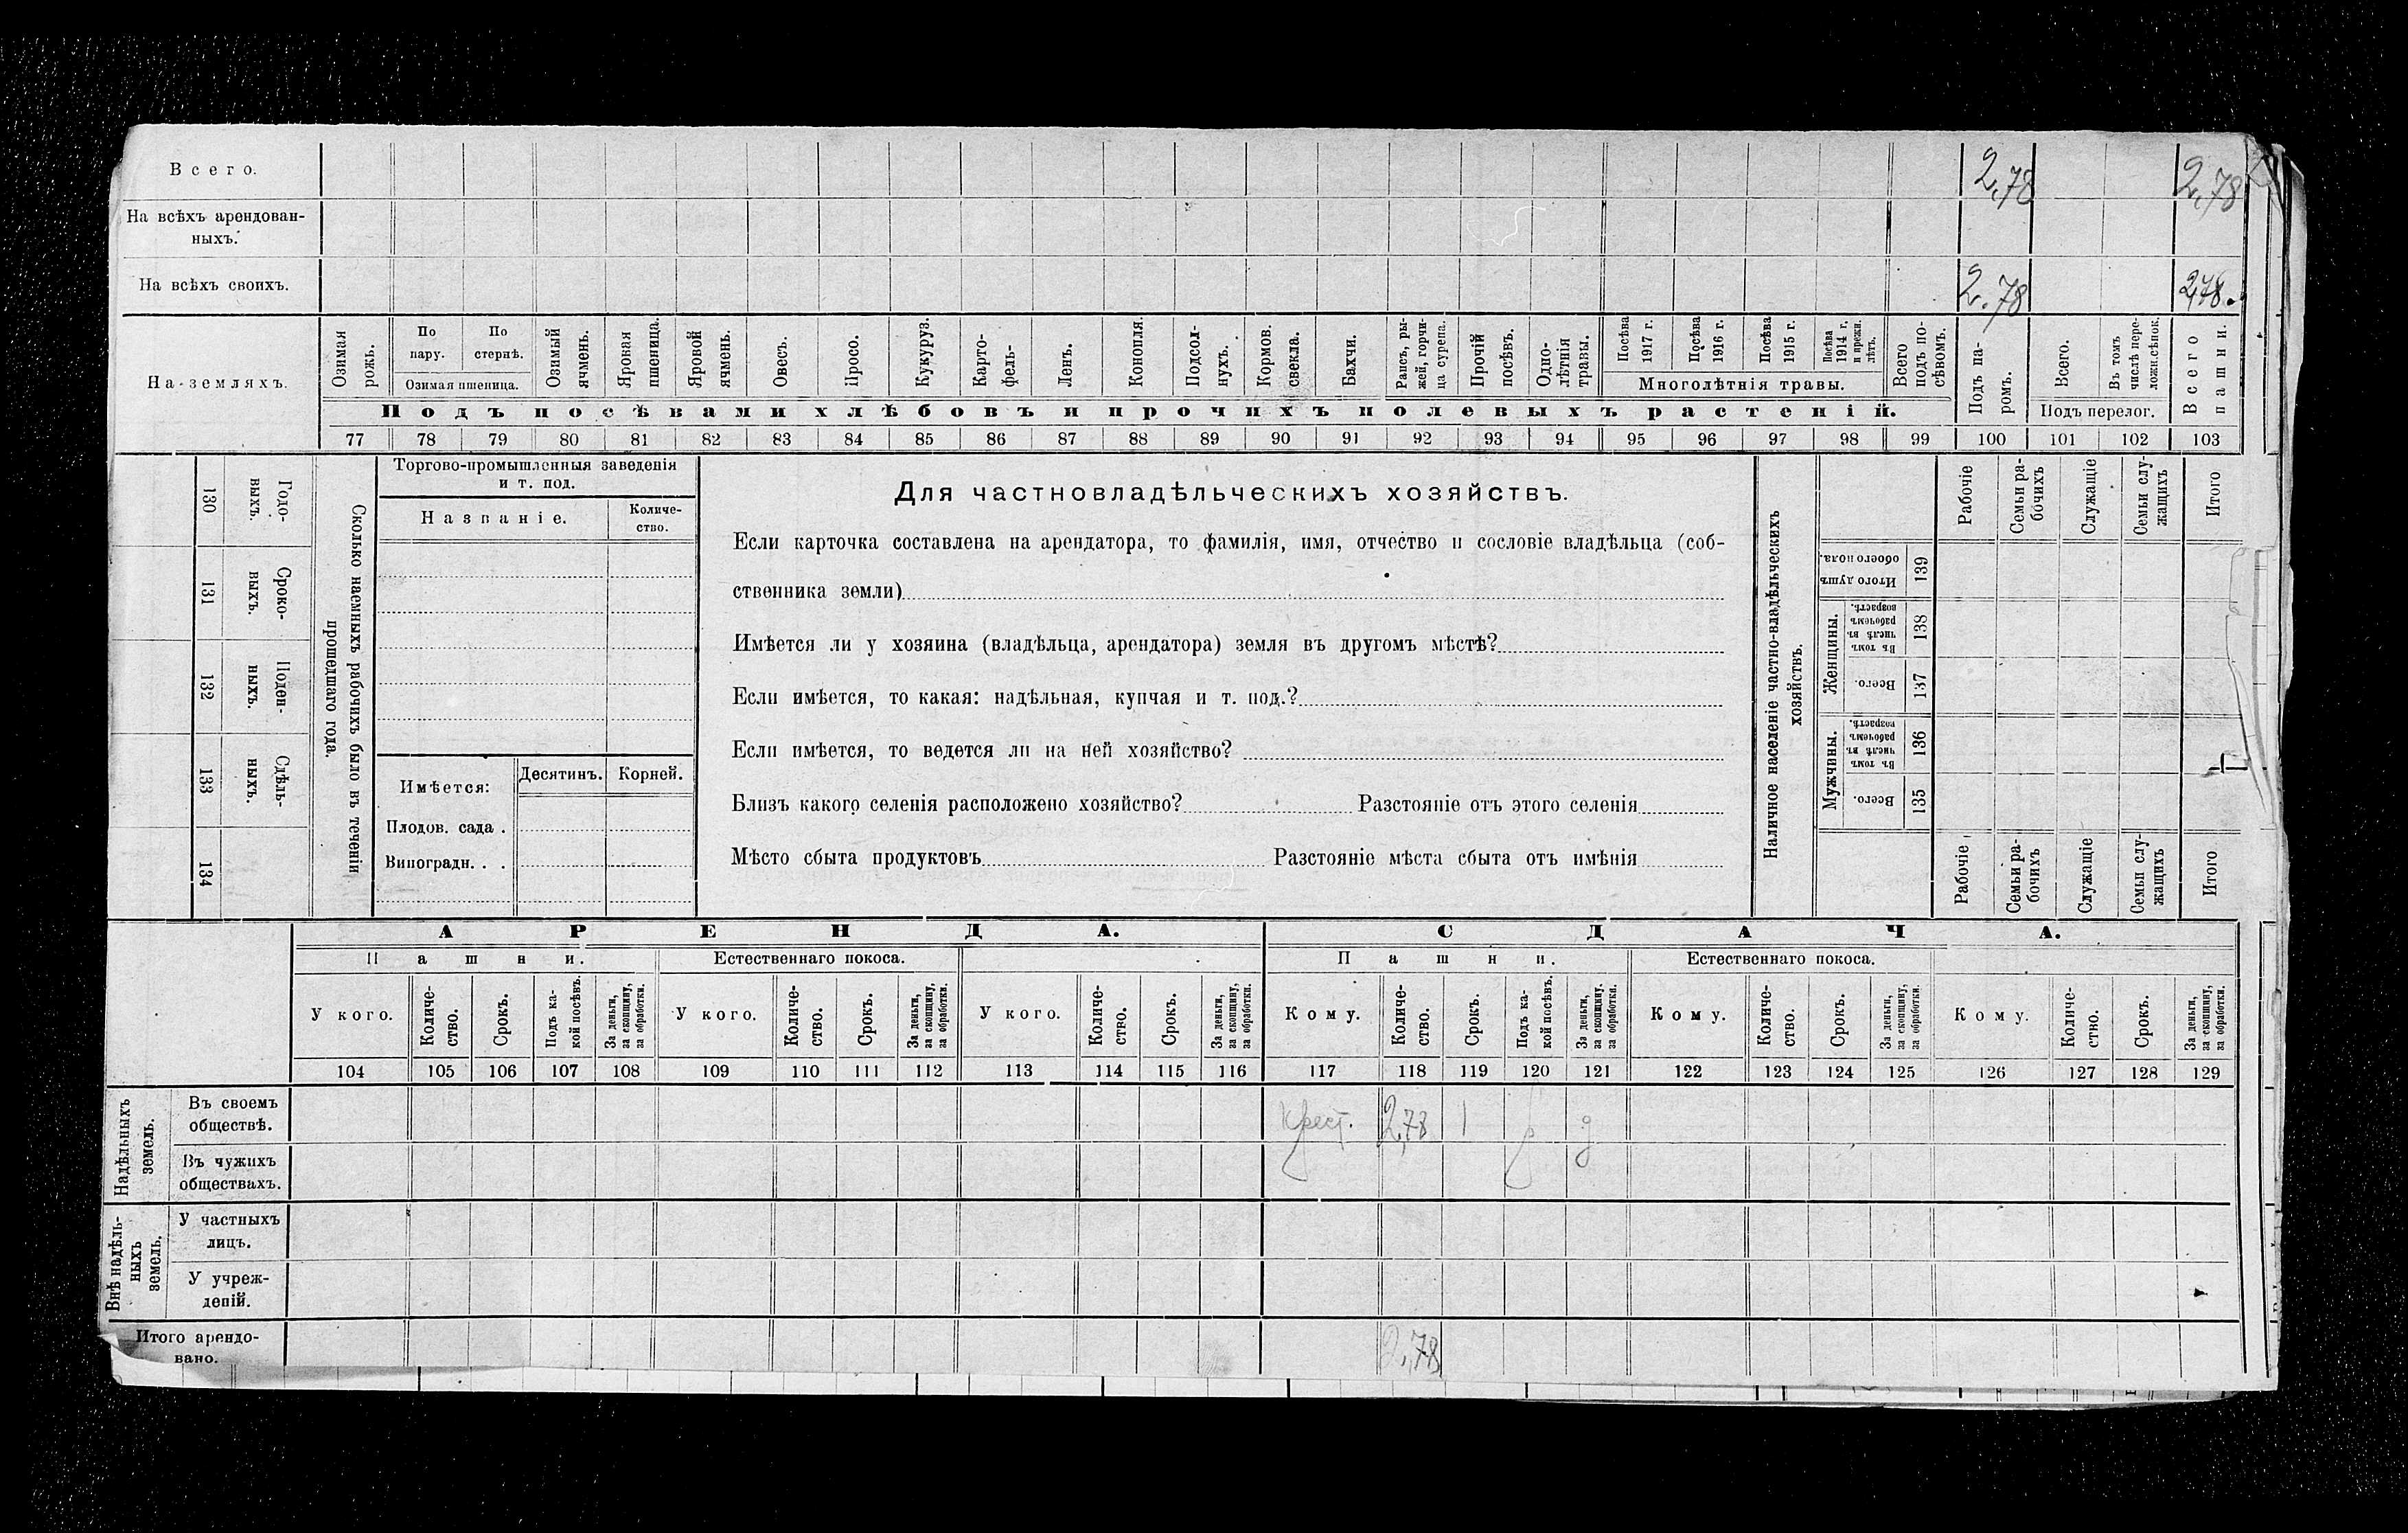 Всего. 2,78 2,78
На всѣхъ арендован-
ныхъ.
На всѣхъ своихъ. 2.78 2,78.
На земляхъ.
Озимая рожь.
По пару.
По стернѣ.
Озимая пшеница.
Озимый ячмень.
Яровая пшеница.
Яровой ячмень.
Овесъ.
Просо.
Кукуруз.
Карто-
фель-
Ленъ.
Конопля.
Подсол-
нухъ.
Кормов. свекла.
Бахчи.
Рапсъ, ры-
жей, горчи-
ца сурепа.
Прочій посѣвъ.
Одно-
лѣтнія травы.
Посѣва 1917 г.
Посѣва 1916 г.
Посѣва 1915 г.
Посѣва 1914 г, и прежн. лѣтъ.
Многолѣтнія травы.
Всего подъ по-
сѣвомъ.
Подъ па-
ромъ.
Всего.
Въ томъ числѣ пере-
ложн.сѣнок.
Подъ перелог.
Всего пашни.
Подъ посѣвами хлѣбовъ и прочихъ полевыхъ растеній.
77 78 79 80 81 82 83 84 85 86 87 88 89 90 91 92 93 94 95 96 97 98 99 100 101 102 103
130 Годо-
выхъ.
131 Сроко-
выхъ.
132 Поден-
ныхъ.
133 Сдѣль-
ныхъ.
134
Сколько наемныхъ рабочихъ было въ теченіи
прошедшаго года.
Торгово-промышленныя заведенія
и т. под.
Названіе. Количе-
ство.
Имѣется: Десятинъ. Корней.
Плодов. сада .
Виноградн. . .
Для частновладѣльческихъ хозяйствъ.
Если карточка составлена на арендатора, то фамилія, имя, отчество и сословіе владѣльца (соб-
ственника земли)
Имѣется ли у хозяина (владѣльца, арендатора) земля въ другомъ мѣстѣ?
Если имѣется, то какая: надѣльная, купчая и т. под.?
Если имѣется, то ведется ли на ней хозяйство?
Близъ какого селенія расположено хозяйство? Разстояніе отъ этого селенія
Мѣсто сбыта продуктовъ Разстояніе мѣста сбыта отъ имѣнія
Наличное населеніе частно-владѣльческихъ
хозяйствъ.
Рабочіе
Семьи ра-
бочихъ
Служащіе
Семьи слу-
жащихъ
Итого
Итого душъ обоего пола. 139
Женщины.
Въ томъ числѣ въ рабочемъ возрастѣ. 138
Всего. 137
Мужчины.
Въ томъ числѣ въ рабочемъ возрастѣ. 136
Всего. 135
Рабочіе
Семьи ра-
бочихъ
Служащіе
Семьи слу-
жащихъ
Итого
АРЕНДА. СДАЧА.
Пашни. Естественнаго покоса. Пашни. Естественнаго покоса.
У кого. Количе-
ство. Срокъ. Подъ ка-
кой посѣвъ. За деньги, за скопщину, за обработки.
У кого. Количе-
ство. Срокъ. За деньги, за скопщину, за обработки.
У кого. Количе-
ство. Срокъ. За деньги, за скопщину, за обработки.
Кому. Количе-
ство. Срокъ. Подъ ка-
кой посѣвъ. За деньги, за скопщину. за обработки.
Кому. Количе-
ство. Срокъ. За деньги, за скопщину, за обработки.
Кому. Количе-
ство. Срокъ. За деньги, за скопщину, за обработки.
104 105 106 107 108 109 110 111 112 113 114 115 116 117 118 119 120 121 122 123 124 125 126 127 128 129
Надѣльныхъ земель.
Въ своемъ
обществѣ. Крест. 2,78 1 р д
Въ чужихъ
обществахъ.
Внѣ надѣль-
ныхъ земель.
У частныхъ
лицъ.
У учреж-
деній.
Итого арендо-
вано. 2,78